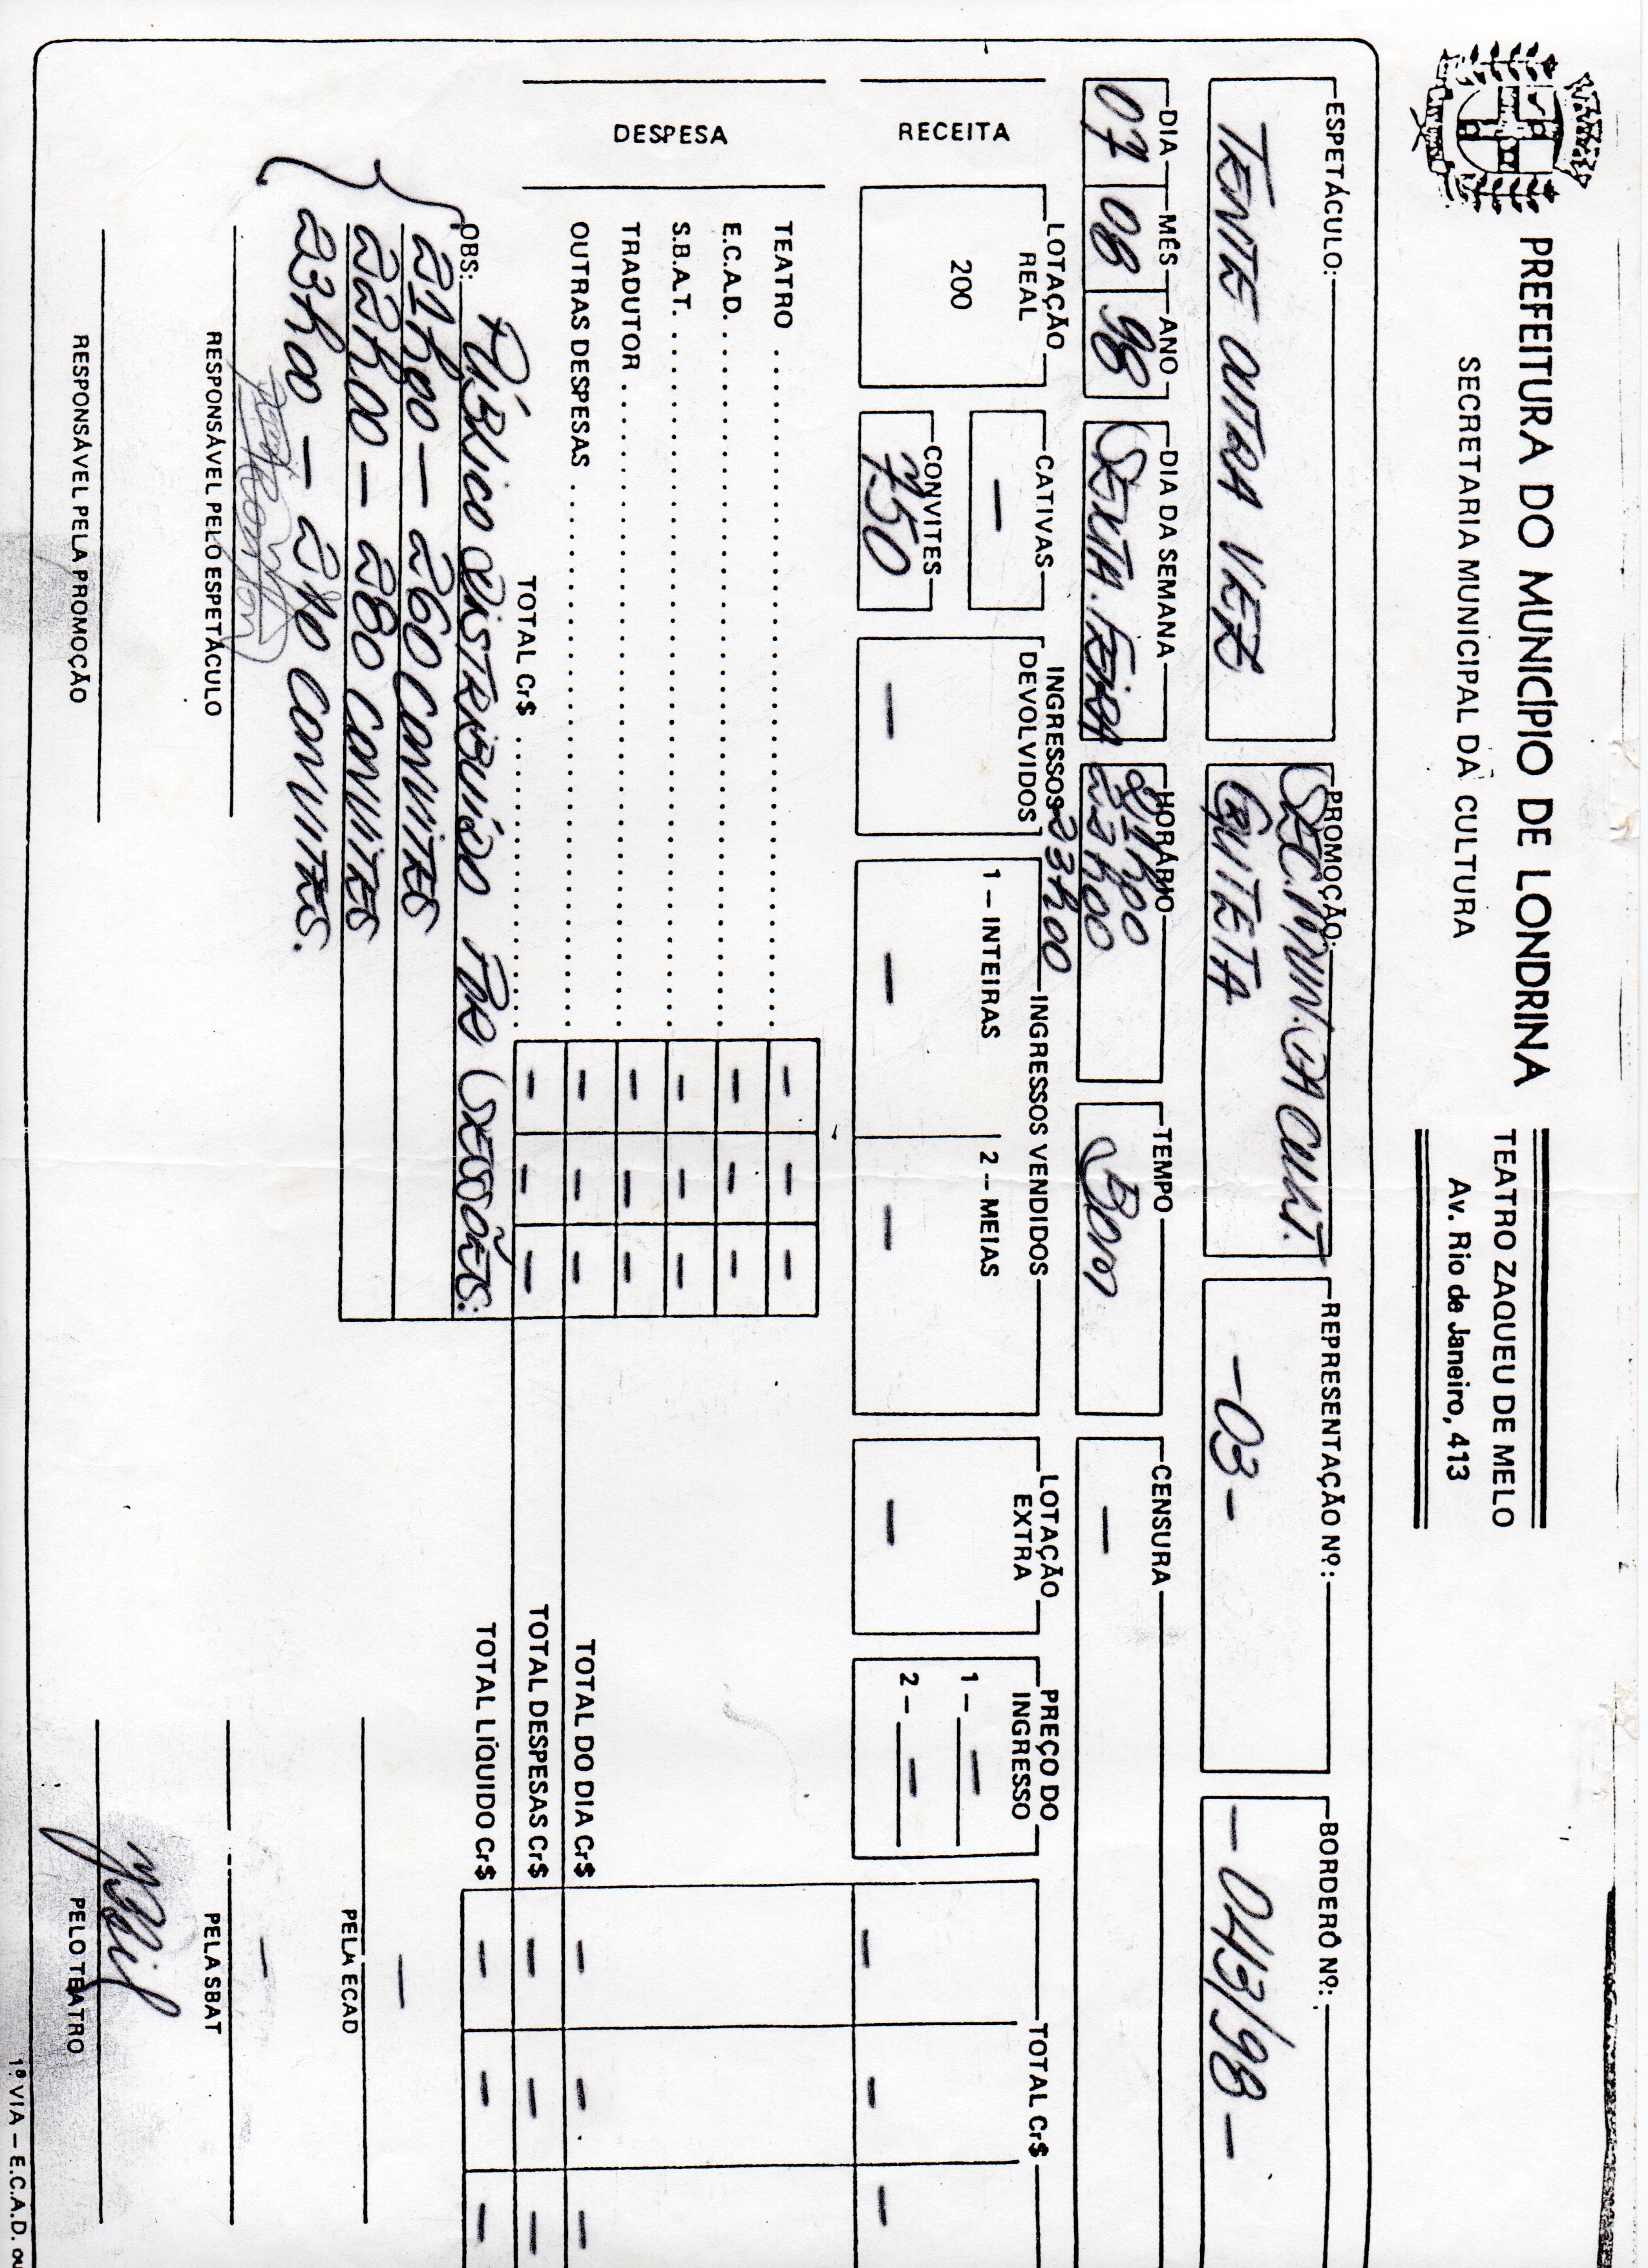 PREFEITURA DO MUNICÍPIO DE LONDRINA
SECRETARIA MUNICIPAL DA CULTURA
TEATRO ZAQUEU DE MELO
Av. Rio de Janeiro, 413
ESPETÁCULO:
TENTE OUTRA VEZ
PROMOÇÃO:
SEC. MUN. DA CULT.
REPRESENTAÇÃO Nº:
-03-
BORDERÔ Nº:
-043/98-
DIA
07
MÊS
08
ANO
98
DIA DA SEMANA
SEXTA-FEIRA
HORÁRIO
21h00
22h00
23h00
TEMPO
BOM
CENSURA
—
RECEITA
LOTAÇÃO REAL
200
CATIVAS
—
CONVITES
750
INGRESSOS DEVOLVIDOS
—
INGRESSOS VENDIDOS
1 – INTEIRAS
—
2 – MEIAS
—
LOTAÇÃO EXTRA
—
PREÇO DO INGRESSO
1 – —
2 – —
TOTAL Cr$
— — —
DESPESA
TEATRO — — —
E.C.A.D. — — —
S.B.A.T. — — —
TRADUTOR — — —
OUTRAS DESPESAS — — —
TOTAL Cr$ — — —
TOTAL DO DIA Cr$ — — —
TOTAL DESPESAS Cr$ — — —
TOTAL LÍQUIDO Cr$ — — —
OBS: PÚBLICO DISTRIBUÍDO POR SESSÕES:
21h00 — 260 CONVITES
22h00 — 280 CONVITES
23h00 — 210 CONVITES.
RESPONSÁVEL PELO ESPETÁCULO
RESPONSÁVEL PELA PROMOÇÃO
—
PELA ECAD
—
PELA SBAT
PELO TEATRO
1ª VIA — E.C.A.D. ou